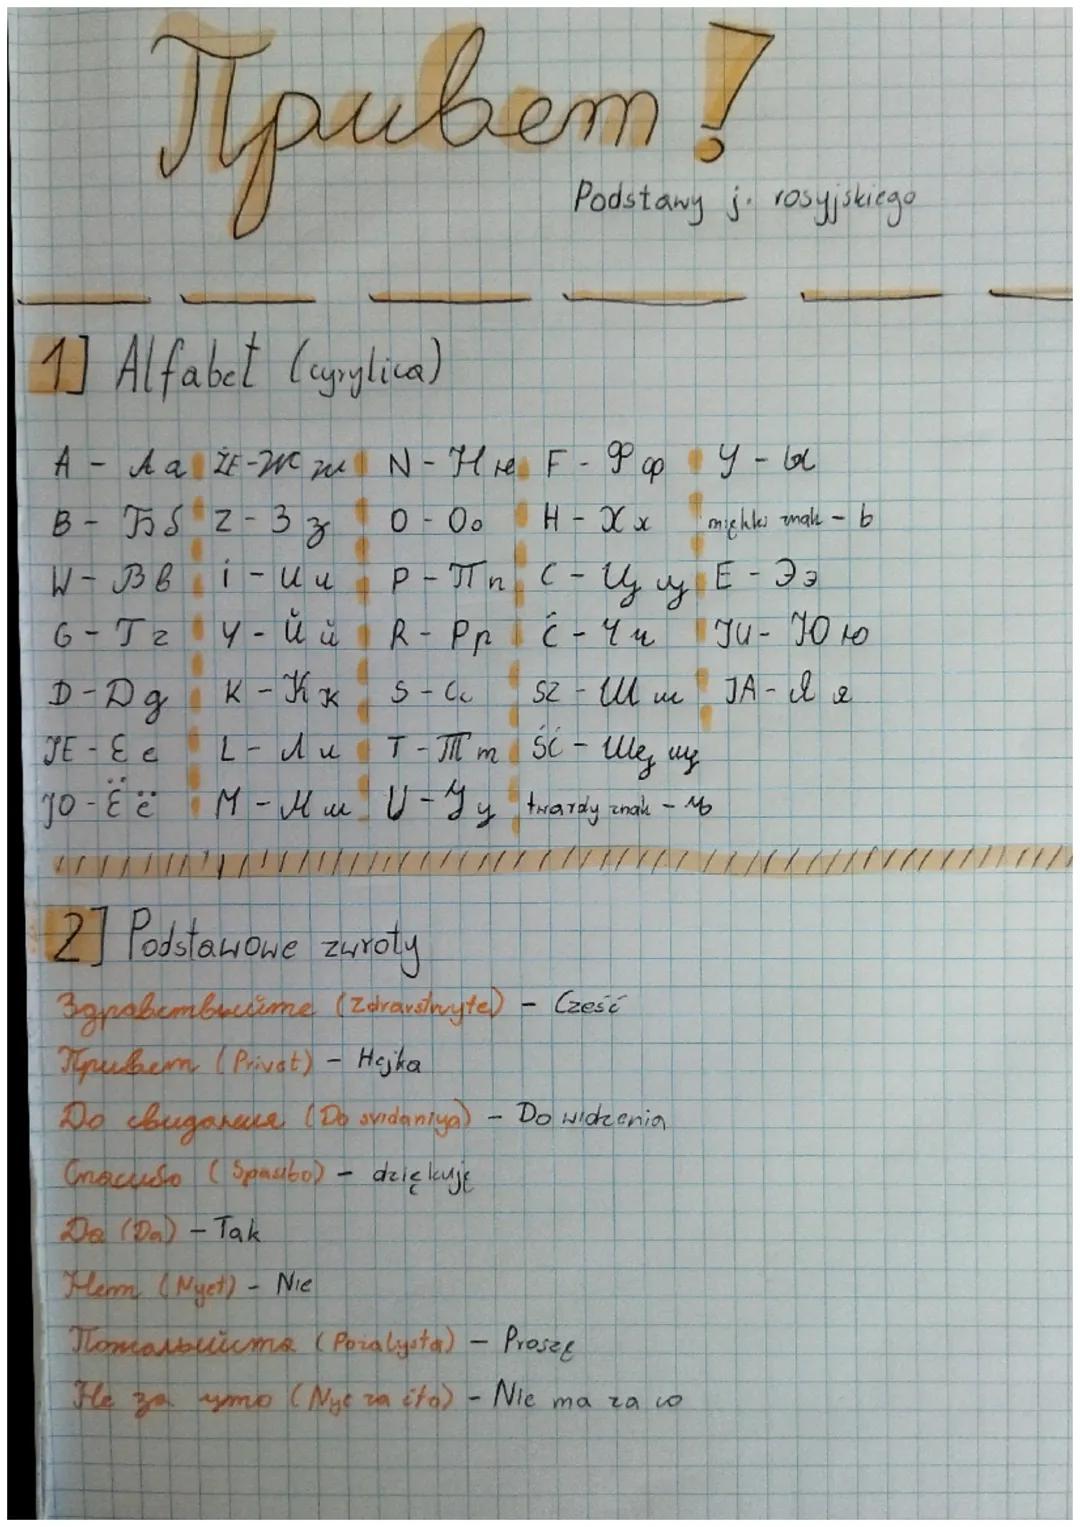 Привет!
Podstawy j. rosyjskiego
1] Alfabet (cyrylica)
A - Аа ŻE - Жж N - Нн F - Фф Y - ы
B - Бб Z - Зз O - Оо H - Хх miękki znak - ь
W - Вв i - Ии P - Пп C - Цц E - Ээ
G - Гг Y - Йй R - Рр Č - Чч JU - Юю
D - Дд K - Кк S - Сс SZ - Шш JA - Яя
JE - Ее L - Лл T - Тт ŚĆ - Щщ
JO - Ёё M - Мм U - Уу twardy znak - ъ
2] Podstawowe zwroty
(Zdravstvuyte) - Cześć
Привет (Privet) - Hejka
До свидания (Do svidaniya) - Do widzenia
Спасибо (Spasibo) - dziękuję
Да (Da) - Tak
Нет (Nyet) - Nie
(Pozalysta) - Proszę
Не за что (Nye za čto) - Nie ma za co